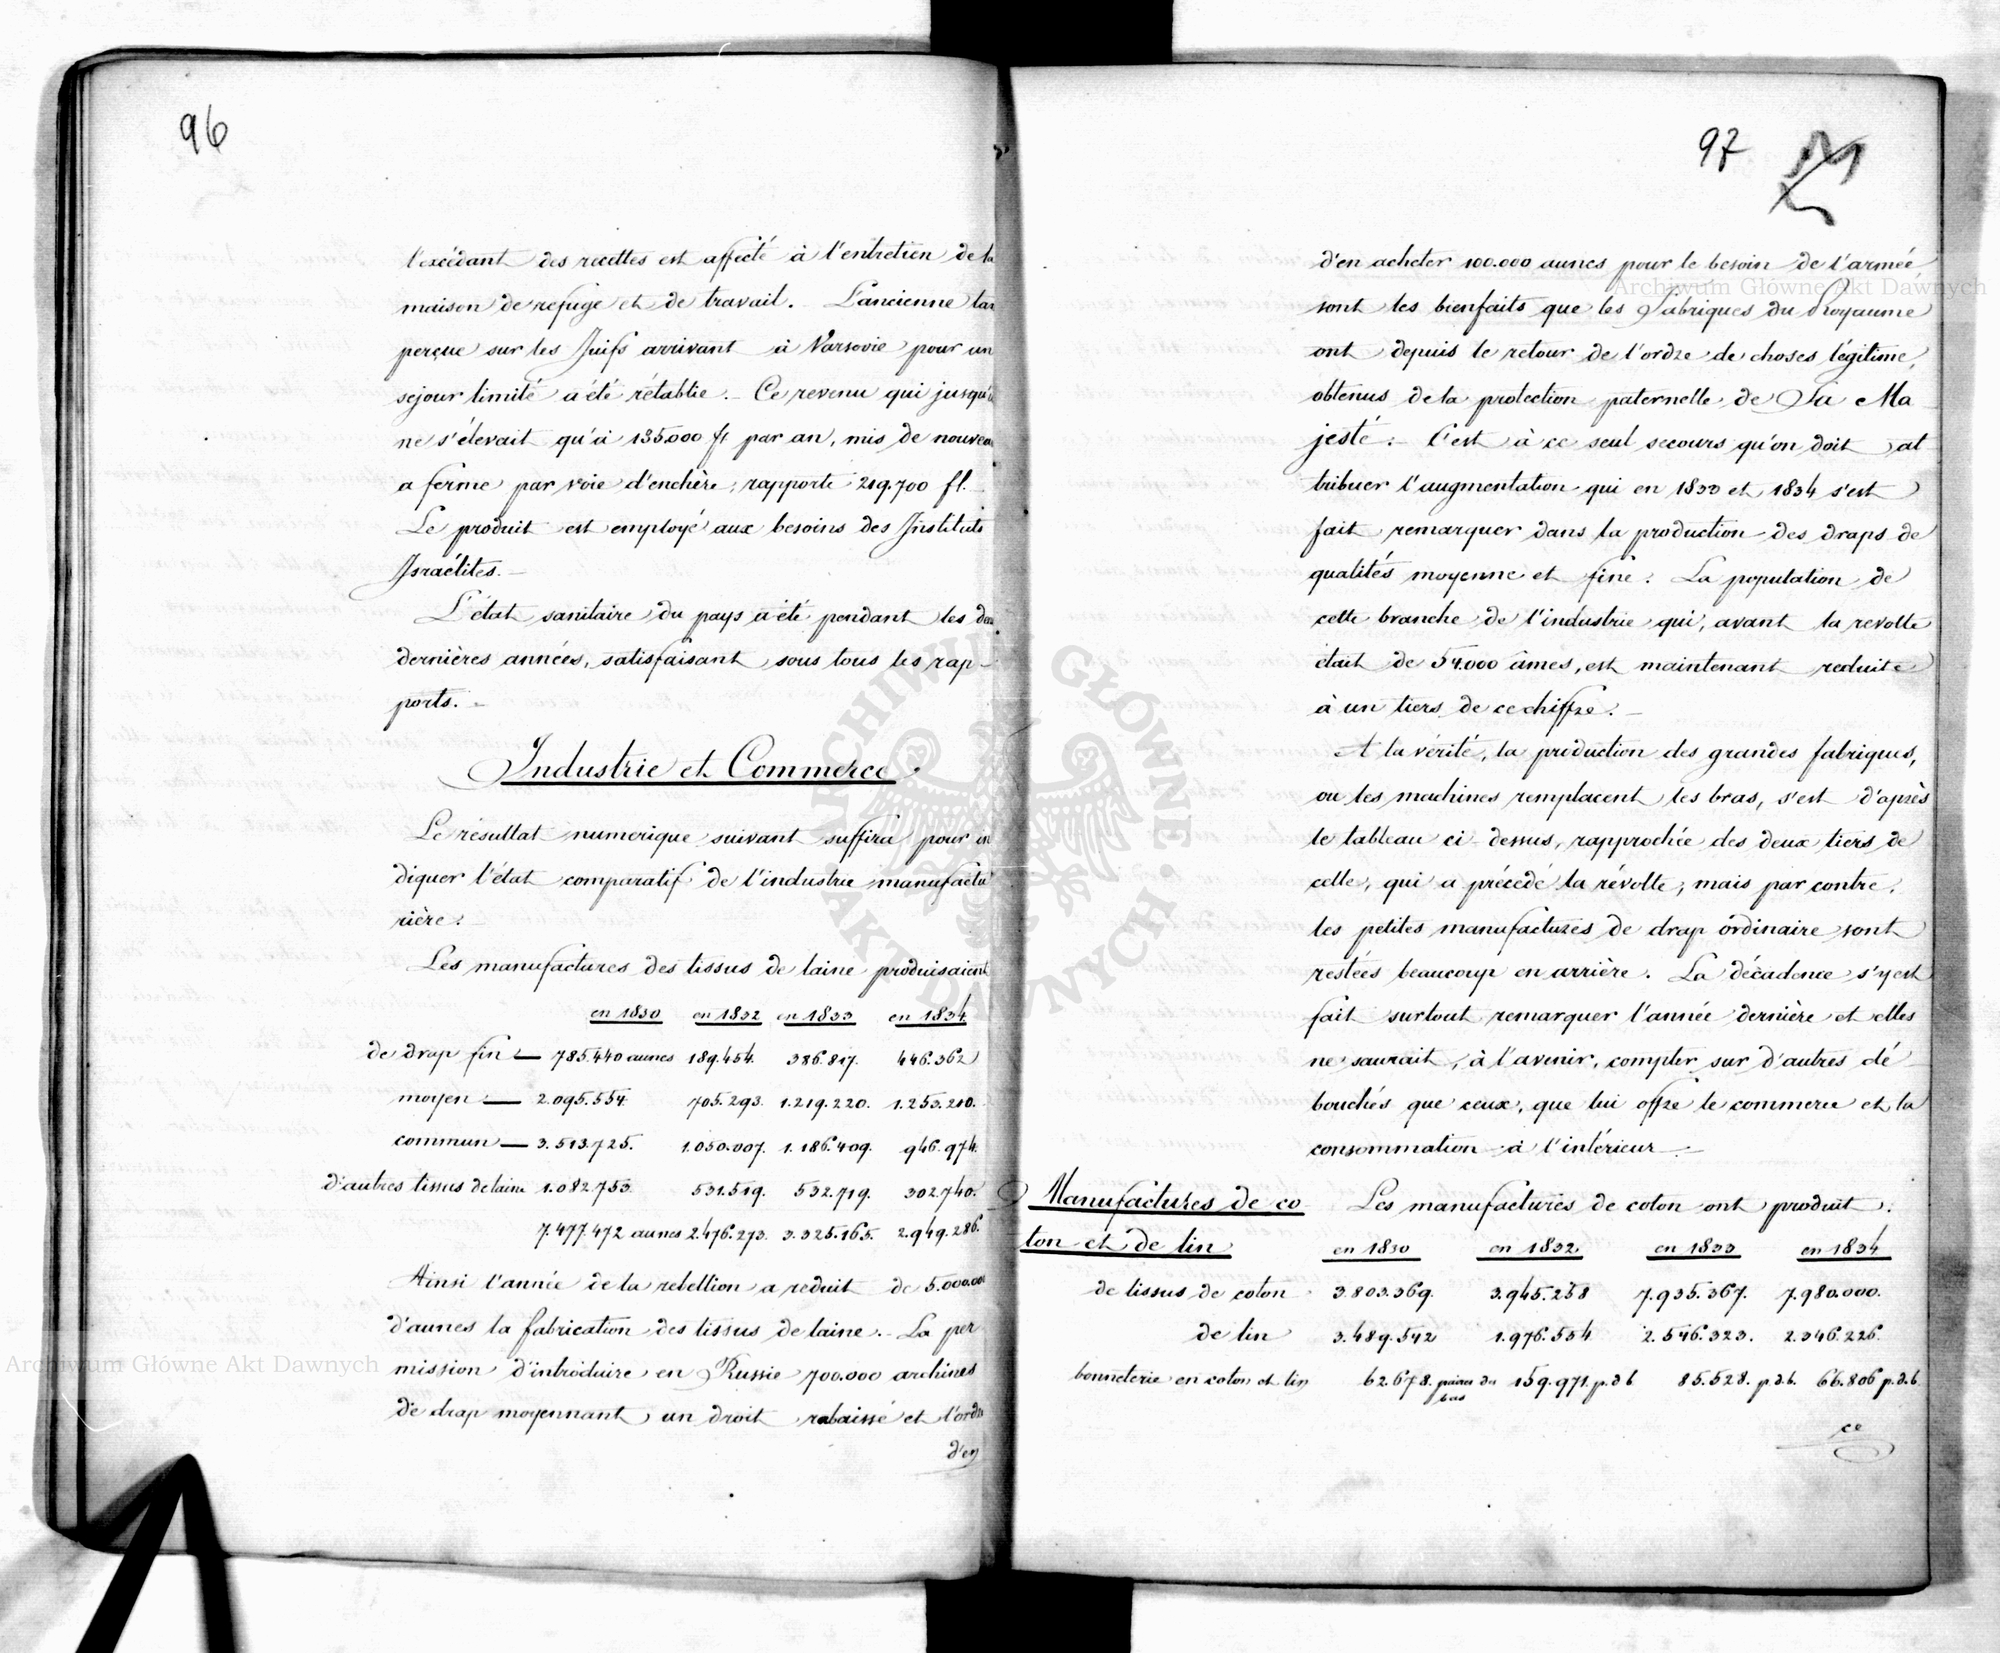 96
l'excédant des recettes est affecté à l'entretien de la
maison de refuge et de travail. L'ancienne
perçue sur les Juifs arrivant à Varsovie pour un
sejour limité a été rétablie. Ce revenu qui jusqu'à
ne s'élevait qu'à 135.000 fl par an, mis de nouveau
a ferme par voie d'enchère, rapporte 219.700 fl.
Le produit est employé aux besoins des Instituts
Israélites.
L'état sanitaire du pays a été pendant les
dernières années, satisfaisant sous tous les rap-
ports.
Industrie et Commerce.
Le résultat numerique suivant suffira pour in
diquer l'état comparatif de l'industrie manufactu
rière.
Les manufactures des tissus de laine produisaient
en 1830 en 1832 en 1833 en 1834
de drap fin — 785.440 aunes 189.454. 386.817. 446.362
moyen — 2.095.554. 705.293. 1.219.220. 1.253.210.
commun — 3.513.725. 1.050.007. 1.186.409. 946.974.
d'autres tissus de laine 1.082.753. 531.519. 532.719. 302.740.
7.477.472 aunes 2.476.273. 3.325.165. 2.949.286.
Ainsi l'année de la rebellion a reduit de 5.000.000
d'aunes la fabrication des tissus de laine. La per
mission d'introduire en Russie 700.000 archines
de drap moyennant un droit rabaissé et l'ordre
d'en
97
d'en acheter 100.000 aunes pour le besoin de l'armée
sont les bienfaits que les Fabriques du Royaume
ont depuis le retour de l'ordre de choses légitime,
obtenus de la protection paternelle de Sa Ma
jesté. C'est à ce seul secours qu'on doit at
tribuer l'augmentation qui en 1833 et 1834 s'est
fait remarquer dans la production des draps de
qualités moyenne et fine. La population de
cette branche de l'industrie qui, avant la revolte
était de 54.000 âmes, est maintenant reduite
à un tiers de ce chiffre.
A la vérité, la production des grandes fabriques,
ou les machines remplacent les bras, s'est d'après
le tableau ci-dessus, rapprochée des deux tiers de
celle, qui a précédé la révolte, mais par contre,
les petites manufactures de drap ordinaire sont
restées beaucoup en arrière. La décadence s'y est
fait surtout remarquer l'année dernière et elles
ne saurait, à l'avenir, compter sur d'autres dé
bouchés que ceux, que lui offre le commerce et la
consommation à l'intérieur.
Manufactures de co
ton et de lin
Les manufacturiés de coton ont produit.
en 1830 en 1832 en 1833 en 1834
de tissus de coton 3.803.369. 3.945.258 7.935.367. 7.980.000.
de lin 3.489.542 1.976.554 2.546.323. 2.346.226.
bonneterie en coton et lin 62.678. paires des bas 159.971. p.d.b. 85.528. p.d.b. 66.806 p.d.b.
ce
Archiwum Główne Akt Dawnych
Archiwum Główne Akt Dawnych
ARCHIWUM GŁÓWNE AKT DAWNYCH